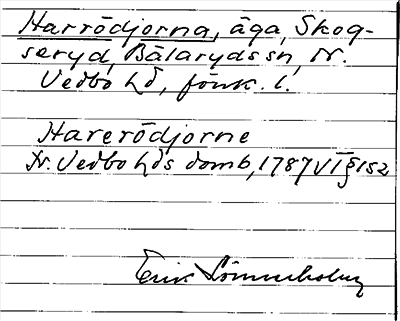 Harrödjorna, äga, Skog-
seryd, Bälaryds sn, N.
Vedbo hd, fönk. l.
Harerödjorne
N. Vedbo hds domb, 1787 VI § 152
Erik